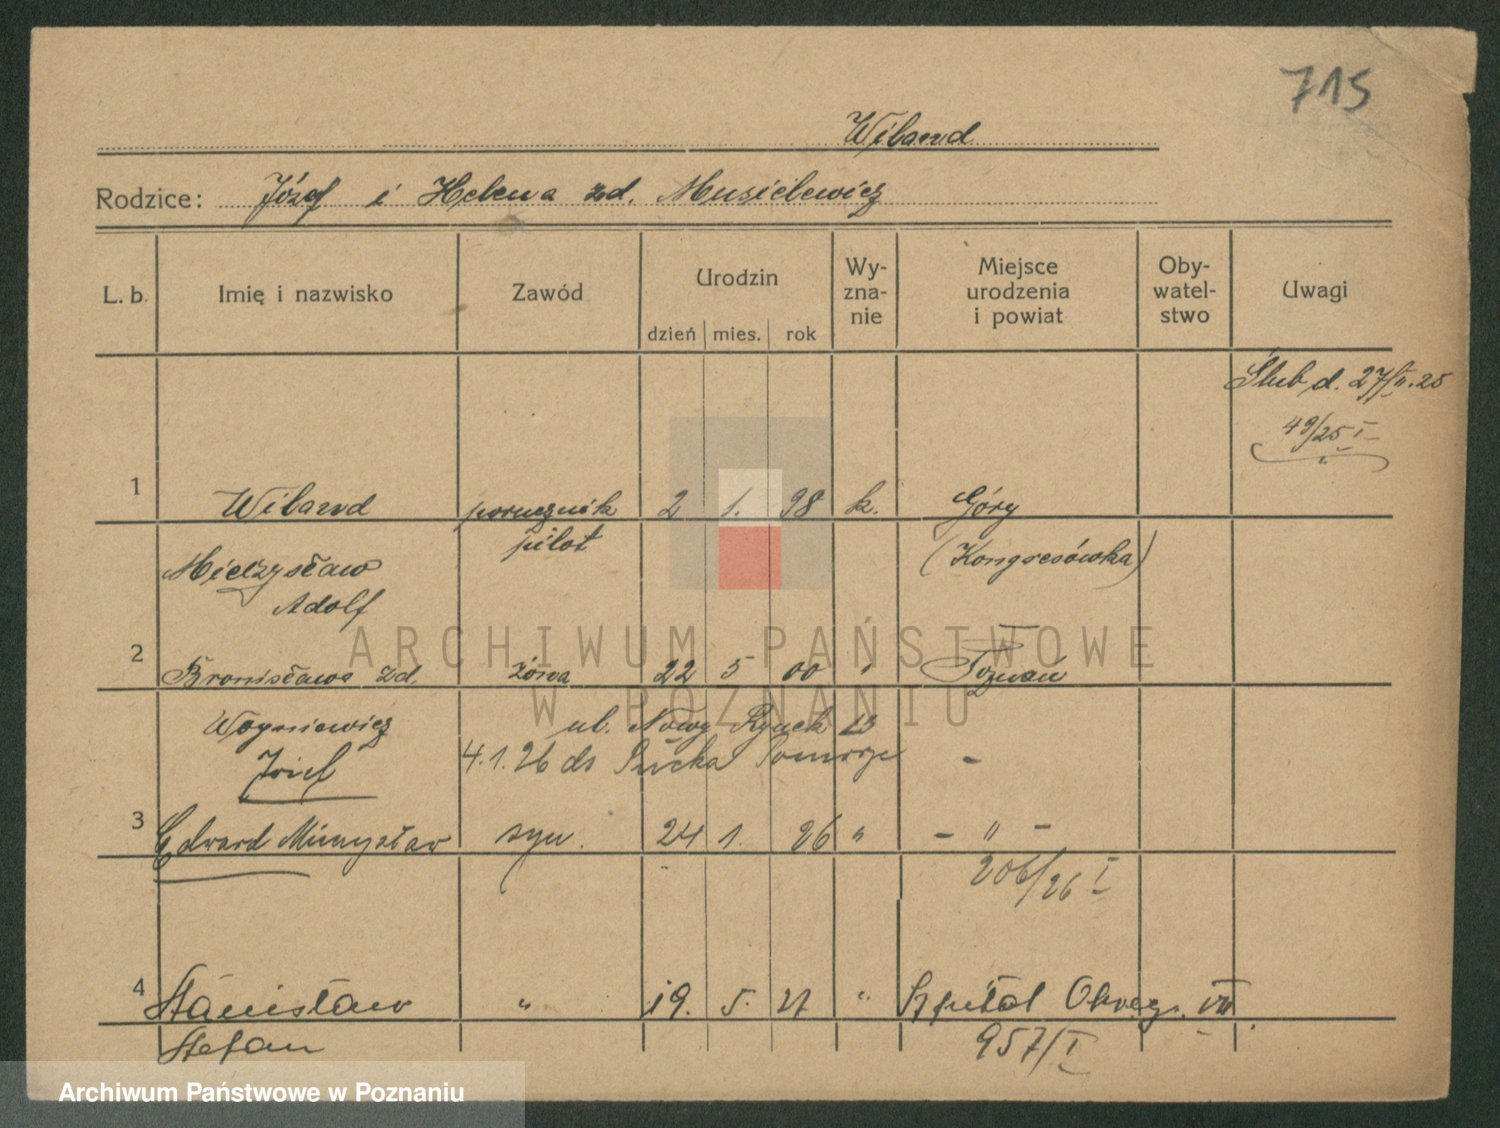 715
Wibawd
Rodzice: Józef i Helena zd. Musielewicz
L. b. Imię i nazwisko Zawód Urodzin dzień mies. rok Wy-zna-nie Miejsce urodzenia i powiat Oby-watel-stwo Uwagi
Ślub d. 27/II.25
49/25 I
1 Wibawd porucznik 2 1. 98 k. Góry
pilot (Kongresówka)
Mieczysław
Adolf
2 Bronisława zd. żona 22 5 00 " Poznań
Woyniewicz ul. Nowy Rynek 13
Józef 4.1.26 do Pucka Pomorze -
3 Edward Mieczysław syn. 24 1. 26 " - " -
206/26 I
4 Stanisław " 19. 5. 27 " Szpital Okręg. VII.
Stefan 957/I
ARCHIWUM PAŃSTWOWE
W POZNANIU
Archiwum Państwowe w Poznaniu